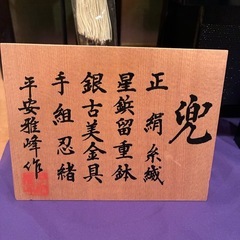 兜
正絹糸縅
星鋲留重鉢
銀古美金具
手組忍緒
平安雅峰作